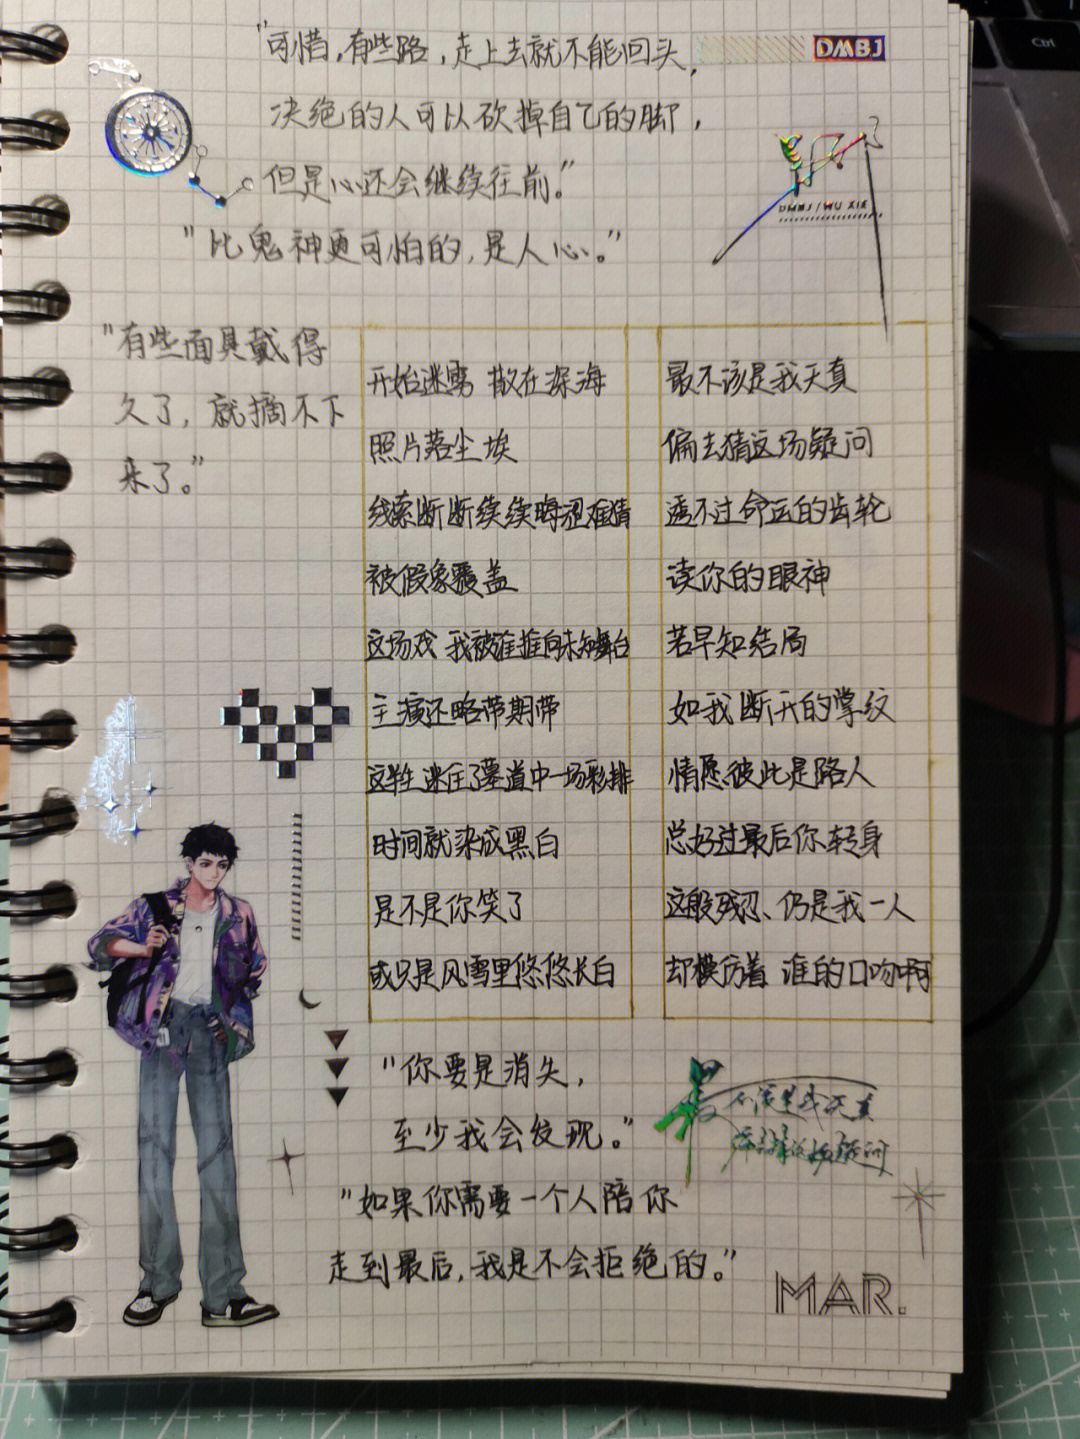 "可惜,有些路,走上去就不能回头,
DMBJ
决绝的人可以砍掉自己的脚,
但是心还会继续往前。"
DMBJ / WU XIE
"比鬼神更可怕的,是人心。"
"有些面具戴得
久了,就摘不下
来了。"
开始迷雾 散在深海
照片落尘埃
线索断断续续晦涩难猜
被假象覆盖
这场戏 我被谁推向未知舞台
主演还略带期带
这半生 迷住了墓道中一场彩排
时间就染成黑白
是不是你笑了
或只是风雪里悠悠长白
最不该是我天真
偏去猜这场疑问
透不过命运的齿轮
读你的眼神
若早知结局
如我断开的掌纹
情愿彼此是路人
总好过最后你转身
这般残忍、仍是我一人
却模仿着 谁的口吻啊
"你要是消失,
至少我会发现。"
最不该是我天真
偏去猜这场疑问
"如果你需要一个人陪你
走到最后,我是不会拒绝的。"
MAR.
Ctrl